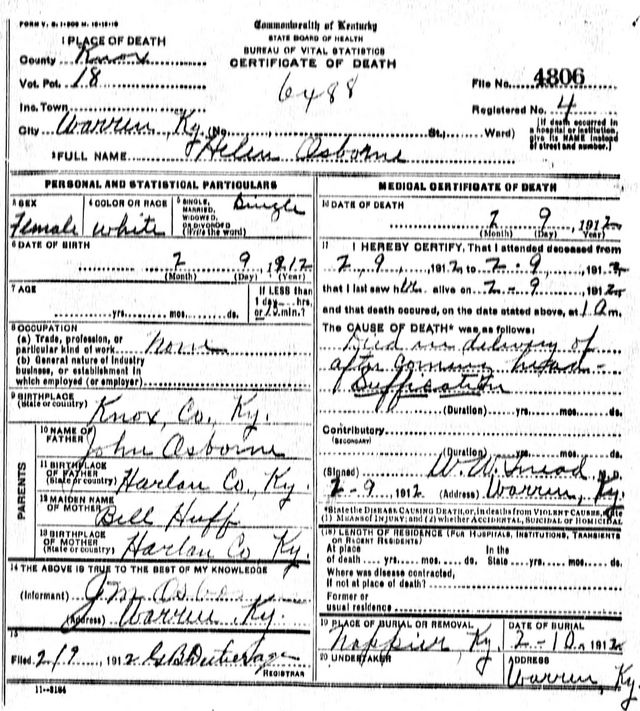 FORM V. S. 1-500 M. 10-18-10
Commonwealth of Kentucky
STATE BOARD OF HEALTH
BUREAU OF VITAL STATISTICS
CERTIFICATE OF DEATH
1 PLACE OF DEATH
County Knox
Vot. Pct. 18
6488
File No. 4806
Inc. Town
Registered No. 4
City Warren, Ky (No. St., Ward)
[If death occurred in a hospital or institution, give its NAME instead of street and number.]
2 FULL NAME Helen Osborne
PERSONAL AND STATISTICAL PARTICULARS
3 SEX Female
4 COLOR OR RACE White
5 SINGLE, MARRIED, WIDOWED, OR DIVORCED (Write the word) Single
6 DATE OF BIRTH
2 9 1912
(Month) (Day) (Year)
7 AGE
yrs. mos. ds.
If LESS than 1 day hrs. or 15 min.?
8 OCCUPATION
(a) Trade, profession, or particular kind of work none
(b) General nature of industry business, or establishment in which employed (or employer)
9 BIRTHPLACE (State or country) Knox, Co, Ky.
PARENTS
10 NAME OF FATHER John Osborne
11 BIRTHPLACE OF FATHER (State or country) Harlan Co, Ky.
12 MAIDEN NAME OF MOTHER Bell Huff
13 BIRTHPLACE OF MOTHER (State or country) Harlan Co, Ky.
14 THE ABOVE IS TRUE TO THE BEST OF MY KNOWLEDGE
(Informant) J. M.
(Address) Warren, Ky.
15
Filed 2/9, 1912 G B
REGISTRAR
11-3184
MEDICAL CERTIFICATE OF DEATH
16 DATE OF DEATH
2 9 1912
(Month) (Day) (Year)
17 I HEREBY CERTIFY, That I attended deceased from
2, 9, 1912 to 2-9, 1912
that I last saw her alive on 2-9, 1912
and that death occured, on the date stated above, at 1 a m.
The CAUSE OF DEATH* was as follows:
Died in delivery of
after head -
Suffication
(Duration) yrs. mos. ds.
Contributory
(SECONDARY)
(Duration) yrs. mos. ds.
(Signed) W. W. M. D.
2-9 1912 (Address) Warren, Ky.
*State the DISEASE CAUSING DEATH, or, in deaths from VIOLENT CAUSES, state
(1) MEANS OF INJURY; and (2) whether ACCIDENTAL, SUICIDAL OR HOMICIDAL
(18) LENGTH OF RESIDENCE (FOR HOSPITALS, INSTITUTIONS, TRANSIENTS OR RECENT RESIDENTS)
At place of death yrs. mos. ds. In the State yrs. mos. ds.
Where was disease contracted, If not at place of death?
Former or usual residence
19 PLACE OF BURIAL OR REMOVAL Nappier Ky.
DATE OF BURIAL 2-10, 1912
20 UNDERTAKER
ADDRESS Warren, Ky.